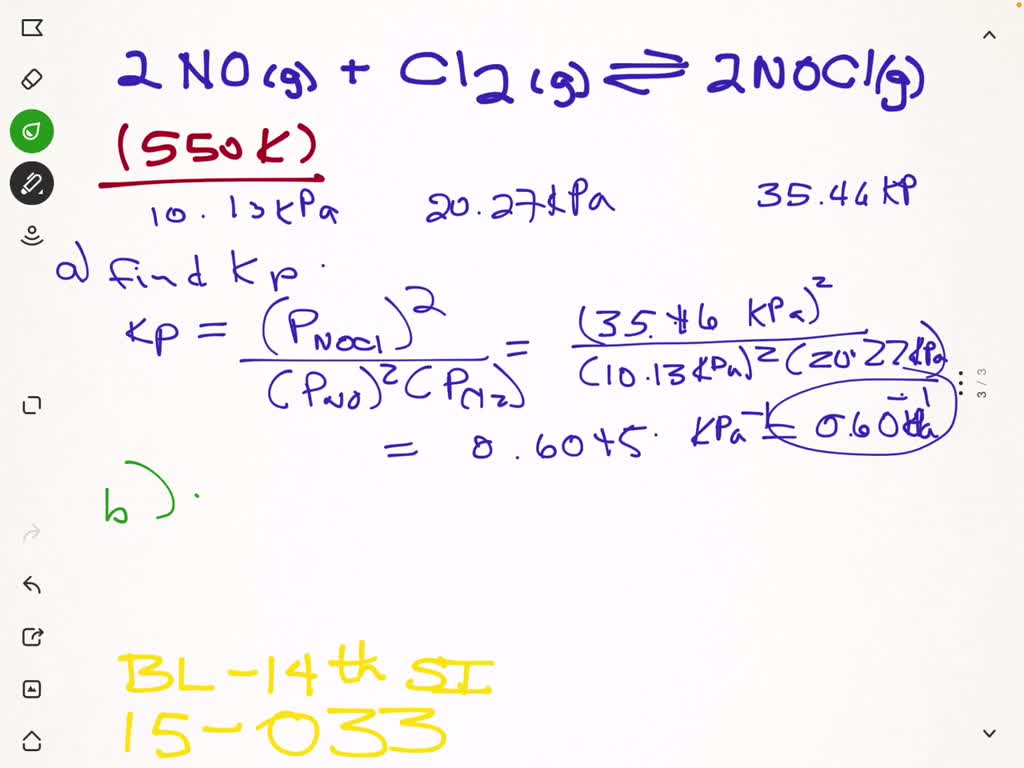 2 NO(g) + Cl2(g) ⇌ 2NOCl(g)
(550K)
10.13 kPa 20.27 kPa 35.46 KP
a) find Kp.
Kp = (P_NOCl)^2 / (P_NO)^2 (P_Cl2) = (35.46 KPa)^2 / (10.13 KPa)^2 (20.27 kPa)
= 0.6045 KPa^-1 = 0.60 kPa^-1
b).
BL-14th SI
15-033
3/3